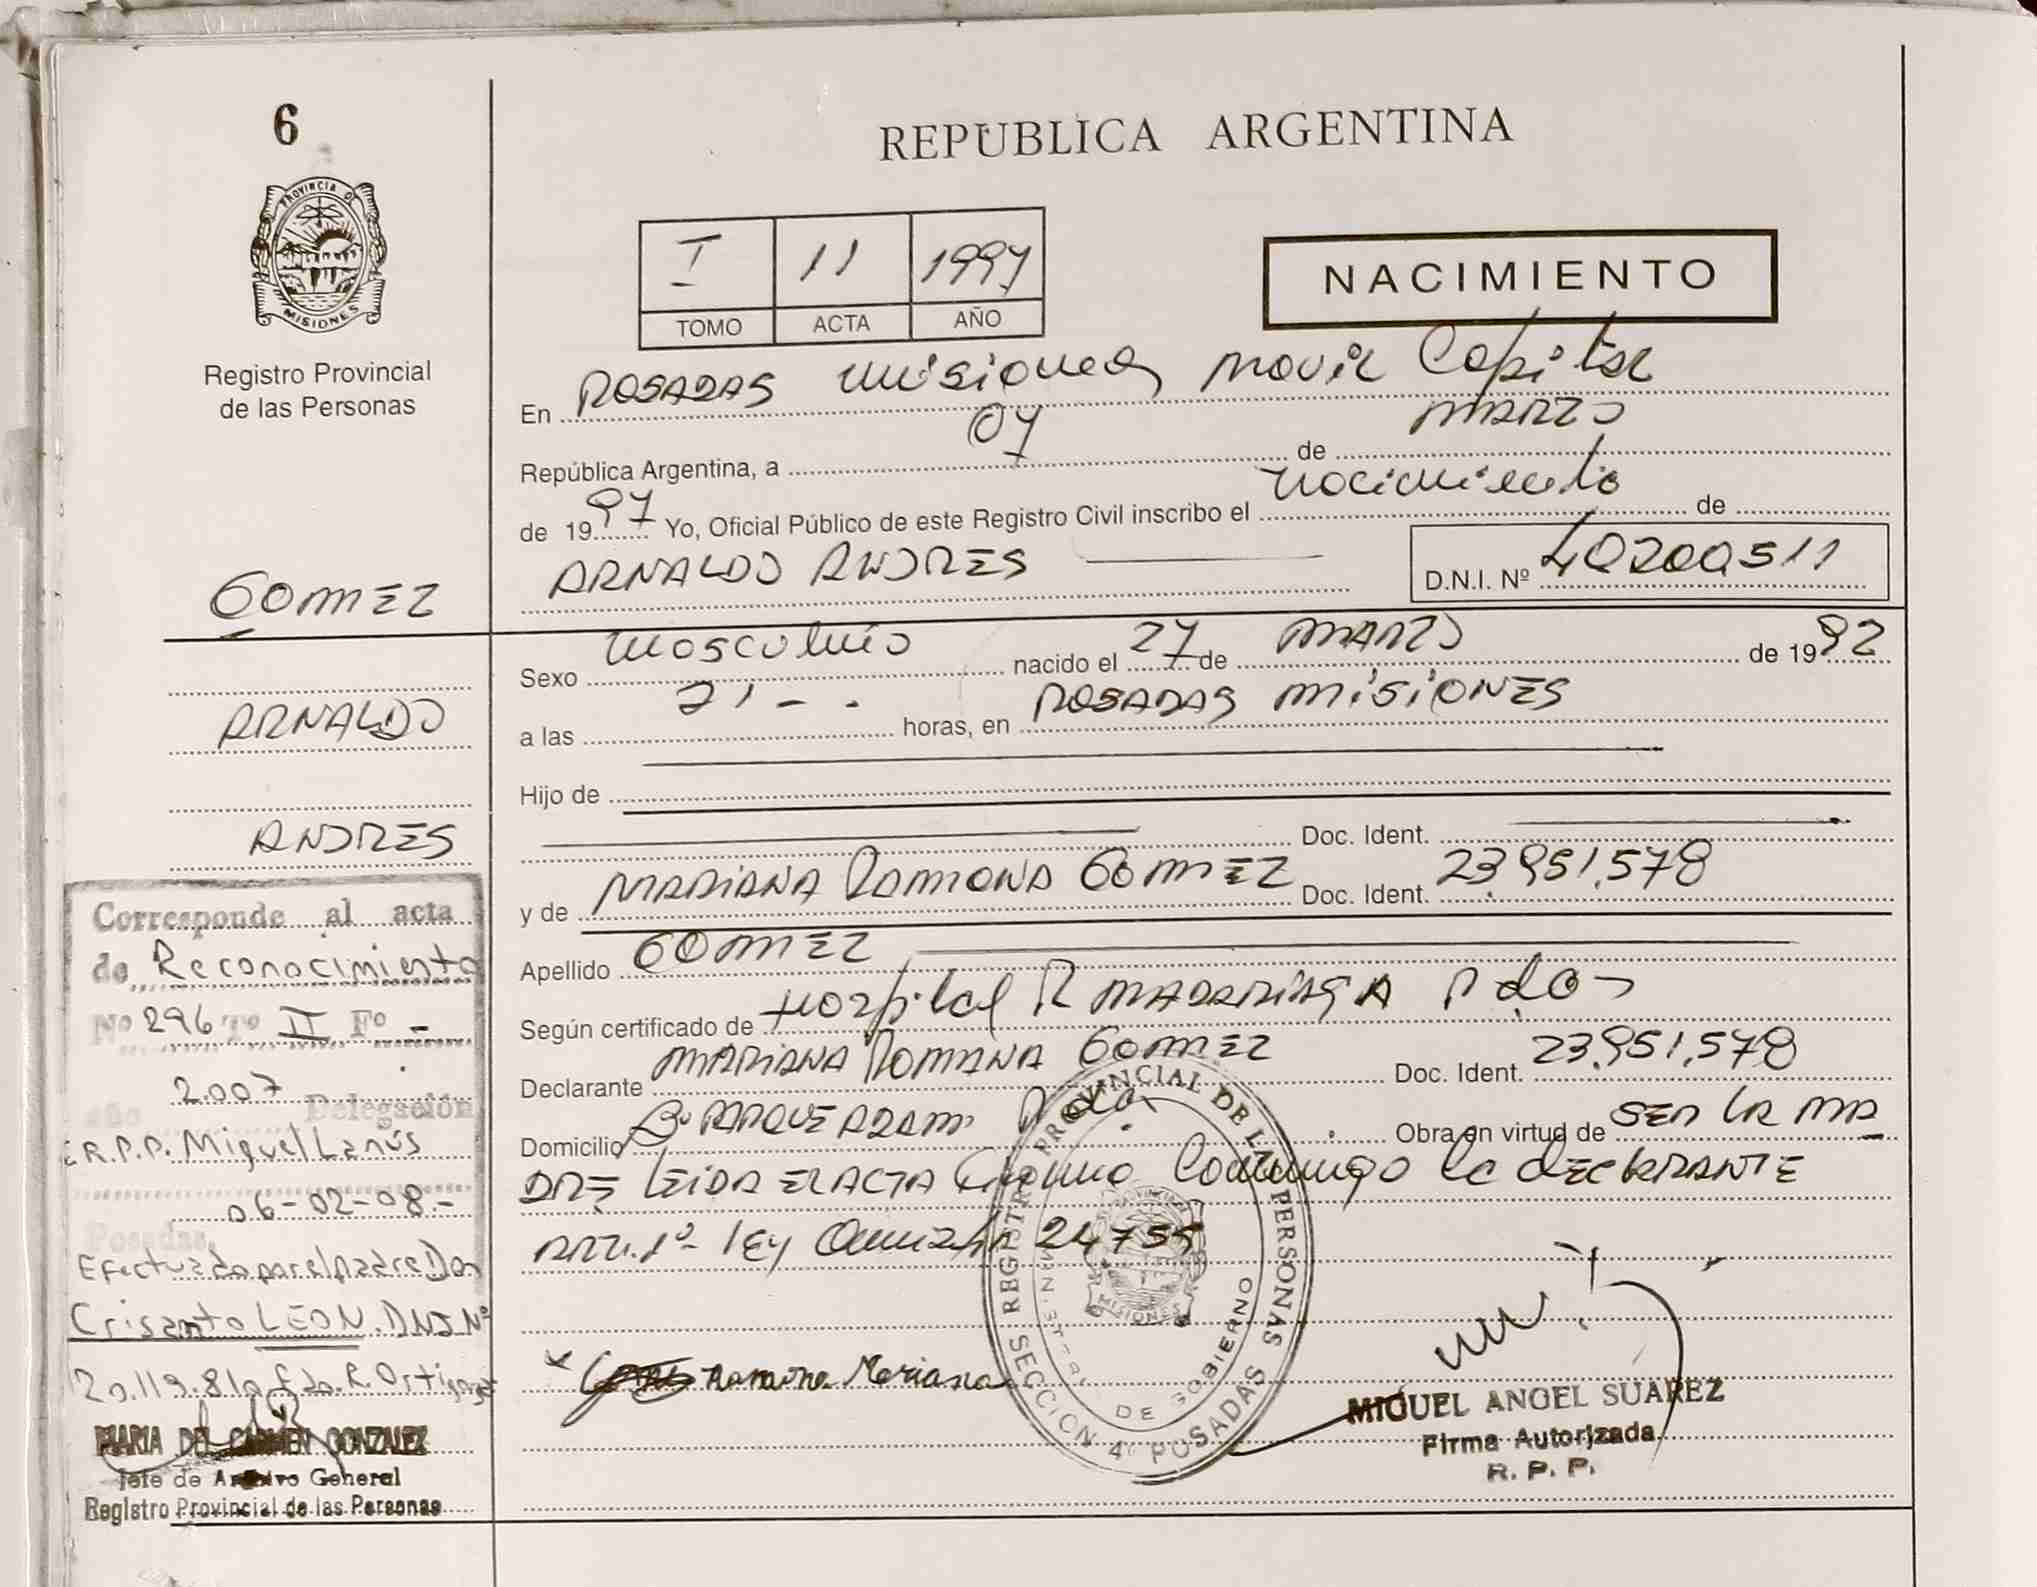 6
PROVINCIA DE
MISIONES
Registro Provincial
de las Personas
REPUBLICA ARGENTINA
I 11 1997
TOMO ACTA AÑO
NACIMIENTO
En POSADAS Misiones Movil Capital
República Argentina, a 07 de MARZO
de 1997 Yo, Oficial Público de este Registro Civil inscribo el nacimiento de
ARNALDO ANDRES
D.N.I. Nº 40200511
GOMEZ
ARNALDO
ANDRES
Sexo masculino nacido el 27 de MARZO de 1992
a las 21 - . horas, en POSADAS MISIONES
Hijo de
Doc. Ident.
y de MARIANA RAMONA GOMEZ Doc. Ident. 23.951.578
Apellido GOMEZ
Según certificado de Hospital R MADARIAGA Pdas
Declarante MARIANA ROMANA GOMEZ Doc. Ident. 23.951.578
Domicilio Bº PARQUE ADAM Pdas Obra en virtud de SER LA MA
DRE LEIDA EL ACTA Firma Conmigo la DECLARANTE
ART. 1º- LEY 24755
Ramona Mariana
REGISTRO PROVINCIAL DE LAS PERSONAS
SECCION 4º POSADAS
DE GOBIERNO
MISIONES
MIGUEL ANGEL SUAREZ
Firma Autorizada
R. P. P.
Corresponde al acta
de Reconocimiento
Nº 296 Tº II Fº -
año 2.007 Delegación
R.P.P. Miguel Lanús
Posadas, 06-02-08.-
Efectuado por el padre Don
Crisanto LEON. DNI Nº
20.119.810 Fdo. R. Ortigoza
MARIA DEL CARMEN GONZALEZ
Jefe de Archivo General
Registro Provincial de las Personas